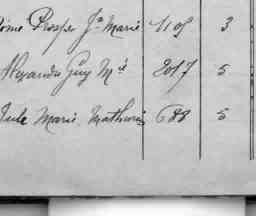 Prosper Jn Marie 1105 3
Alexandre Guy Mie 2017 5
Jule Marie Mathurin 688 5